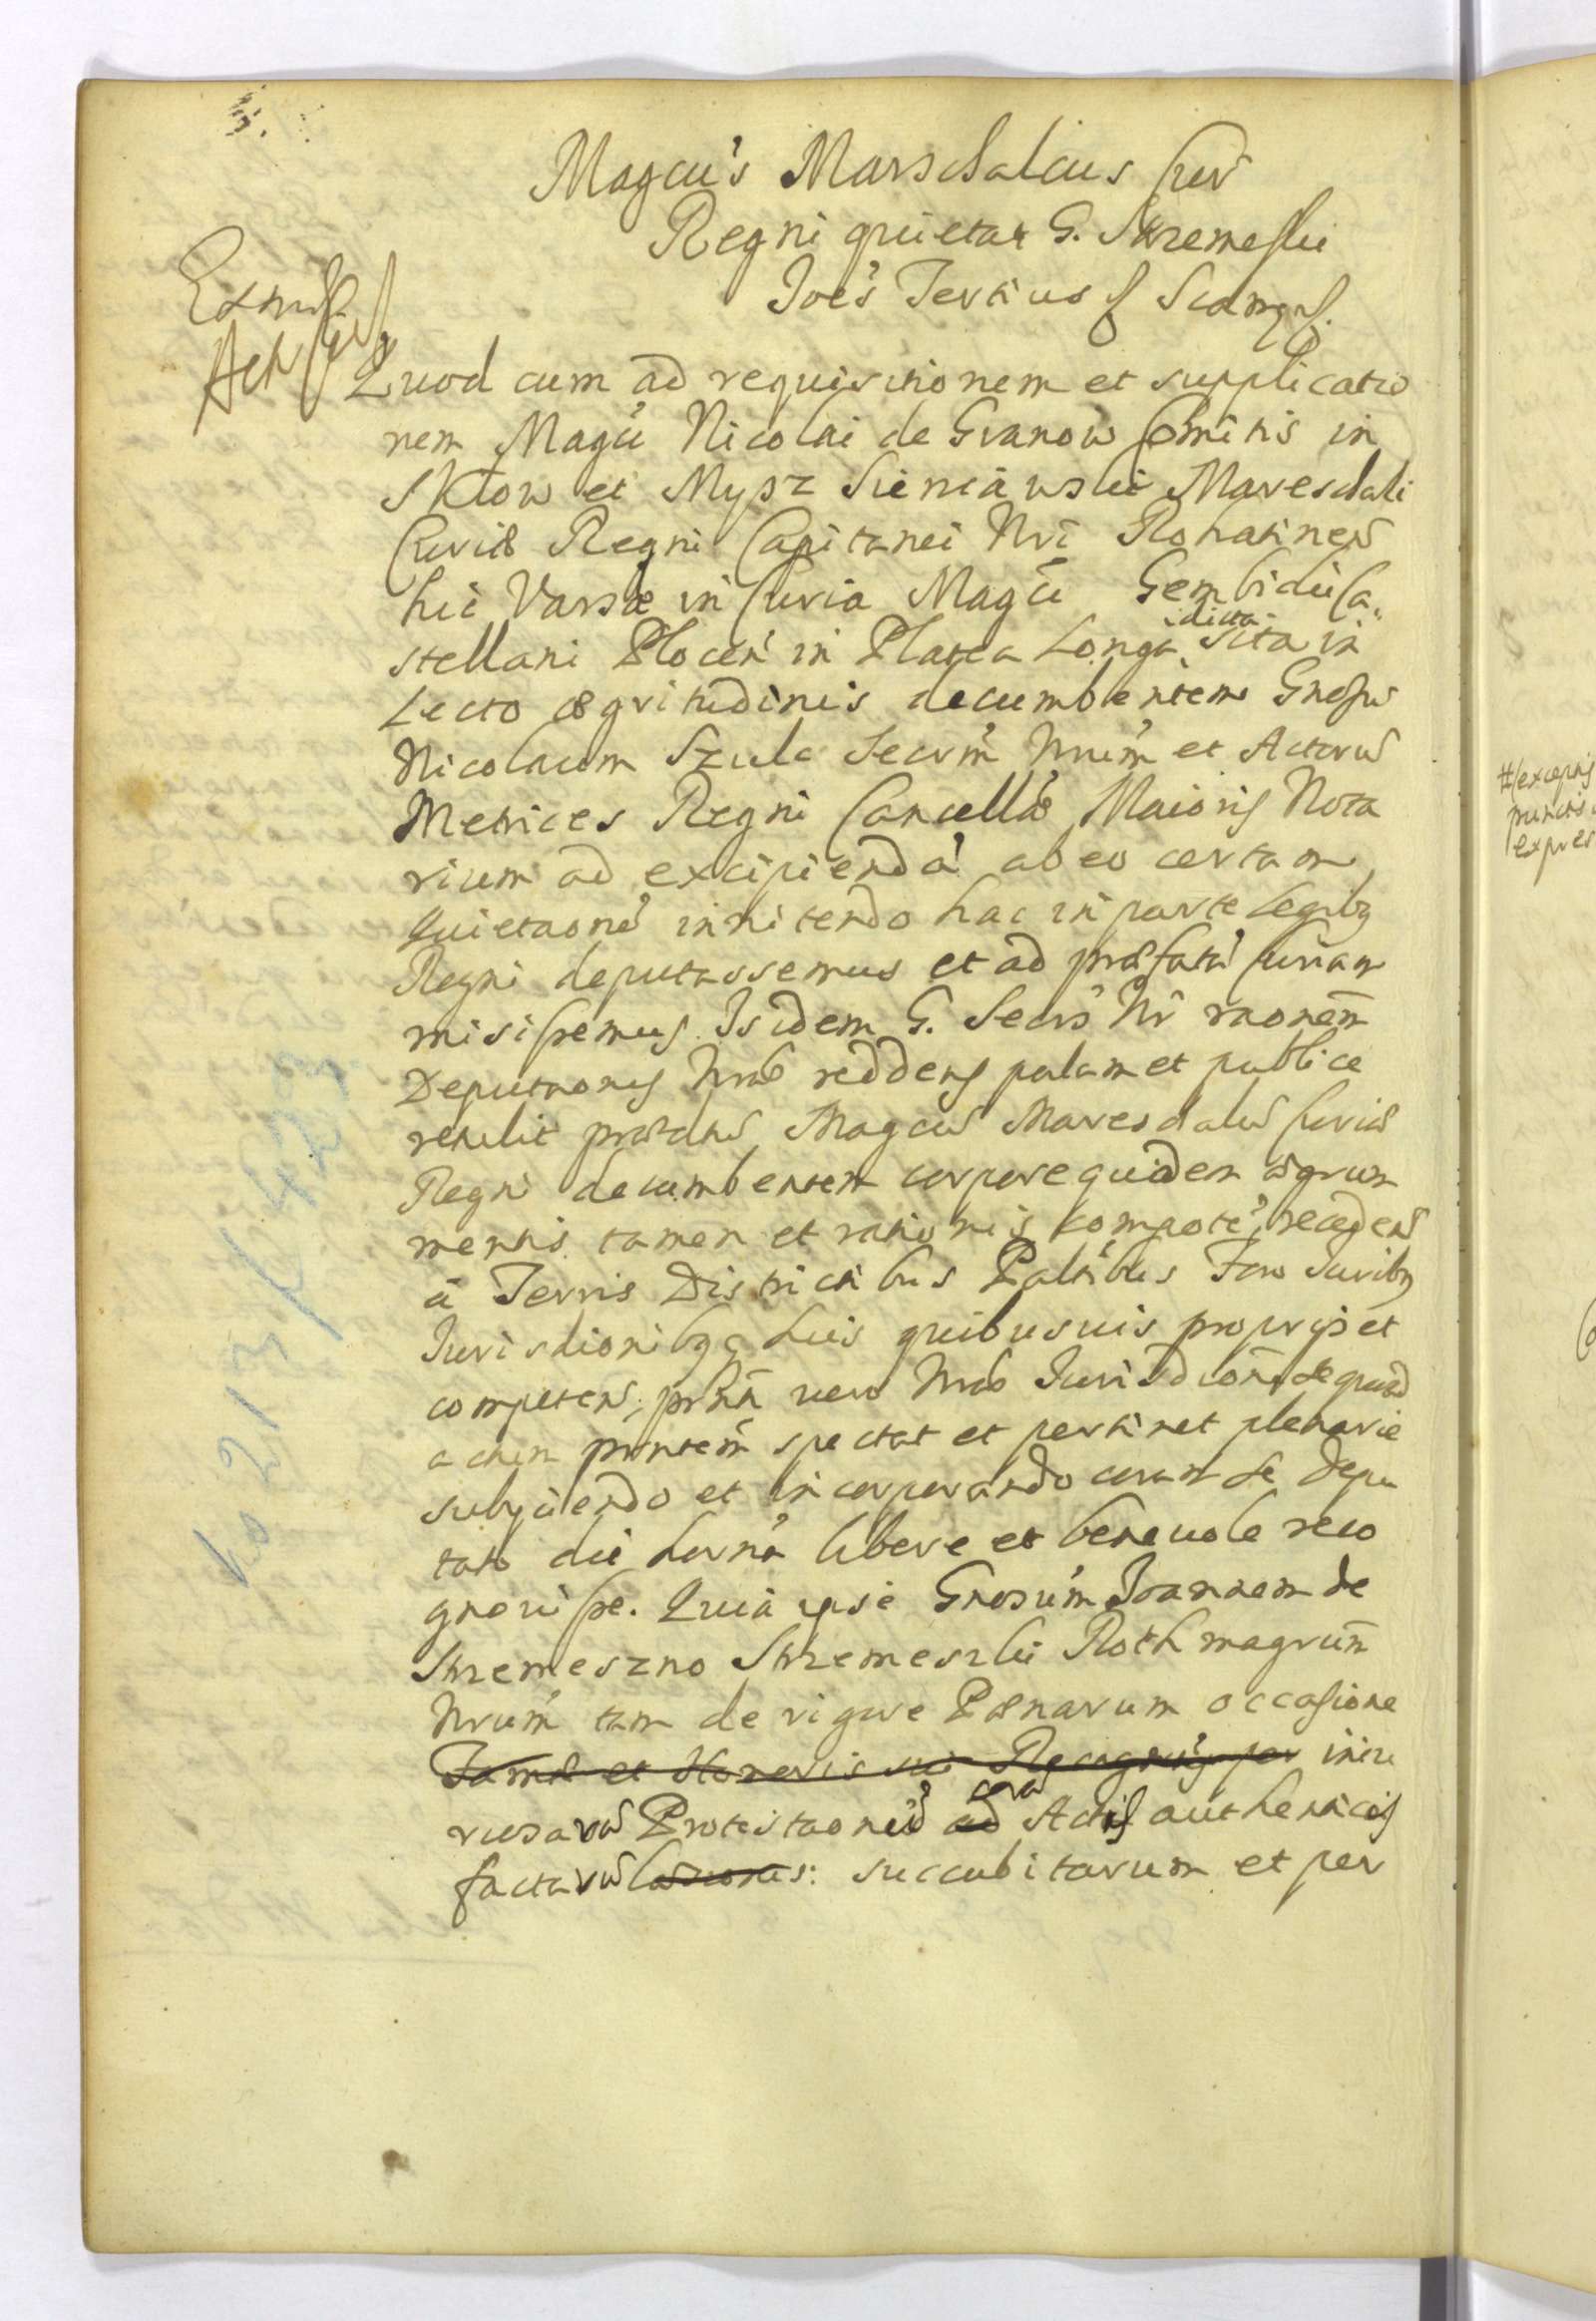 Magcus Marschalcus Cur
Regni quietat G. Strzemeski
Joes Tertius & Scamus.
Extradit
Quod cum ad requisitionem et supplicatio
nem Magci Nicolai de Granow Comitis in
Sklow et Mysz Sieniawski Mareschali
Curiæ Regni Capitanei Nri Rohatinen
hic Varsæ in Curia Magci Gembicki Ca„
stellani Plocen in Platea Longa dicta sita in
Lecto ægritudinis decumbentem Gnosum
Nicolaum Szulc Secrm Nrum et Actorum
Metrices Regni Cancellæ Maioris Nota
rium ad excipiendā ab eo certam
Quietaone innitendo hac in parte Legibq
Regni deputassemus et ad præfatā Curiam
misissemus. Isidem G. Secrs Nr raonem
Deputaonis Nræ reddens palam et publice
retulit præfatus Magcus Marescalcus Curiæ
Regni decumbentem corpore quidem ægrum
mentis tamen et rationis compote, recedens
à Terris Districtibus Paltibus Foro Juribq
Jurisdionibqq suis quibusuis proprijs et
competen; prnti vero Nræ Jurisdioni se quoad
actum prntem spectat et pertinet plenarie
subyciendo et incorporando coram se depu
tato die herna libere et beneuole reco
gnouisse. Quia ipse Gnosum Joannem de
Strzemeszno Strzemeszki Rothmagrum
Nrum tam de rigore Pænarum occasione
Famæ et Honoris sui
rusarum Protestaonum ad coram Actis authenticis
factarum succubitarum et per
#(exceptis
punctis
expres